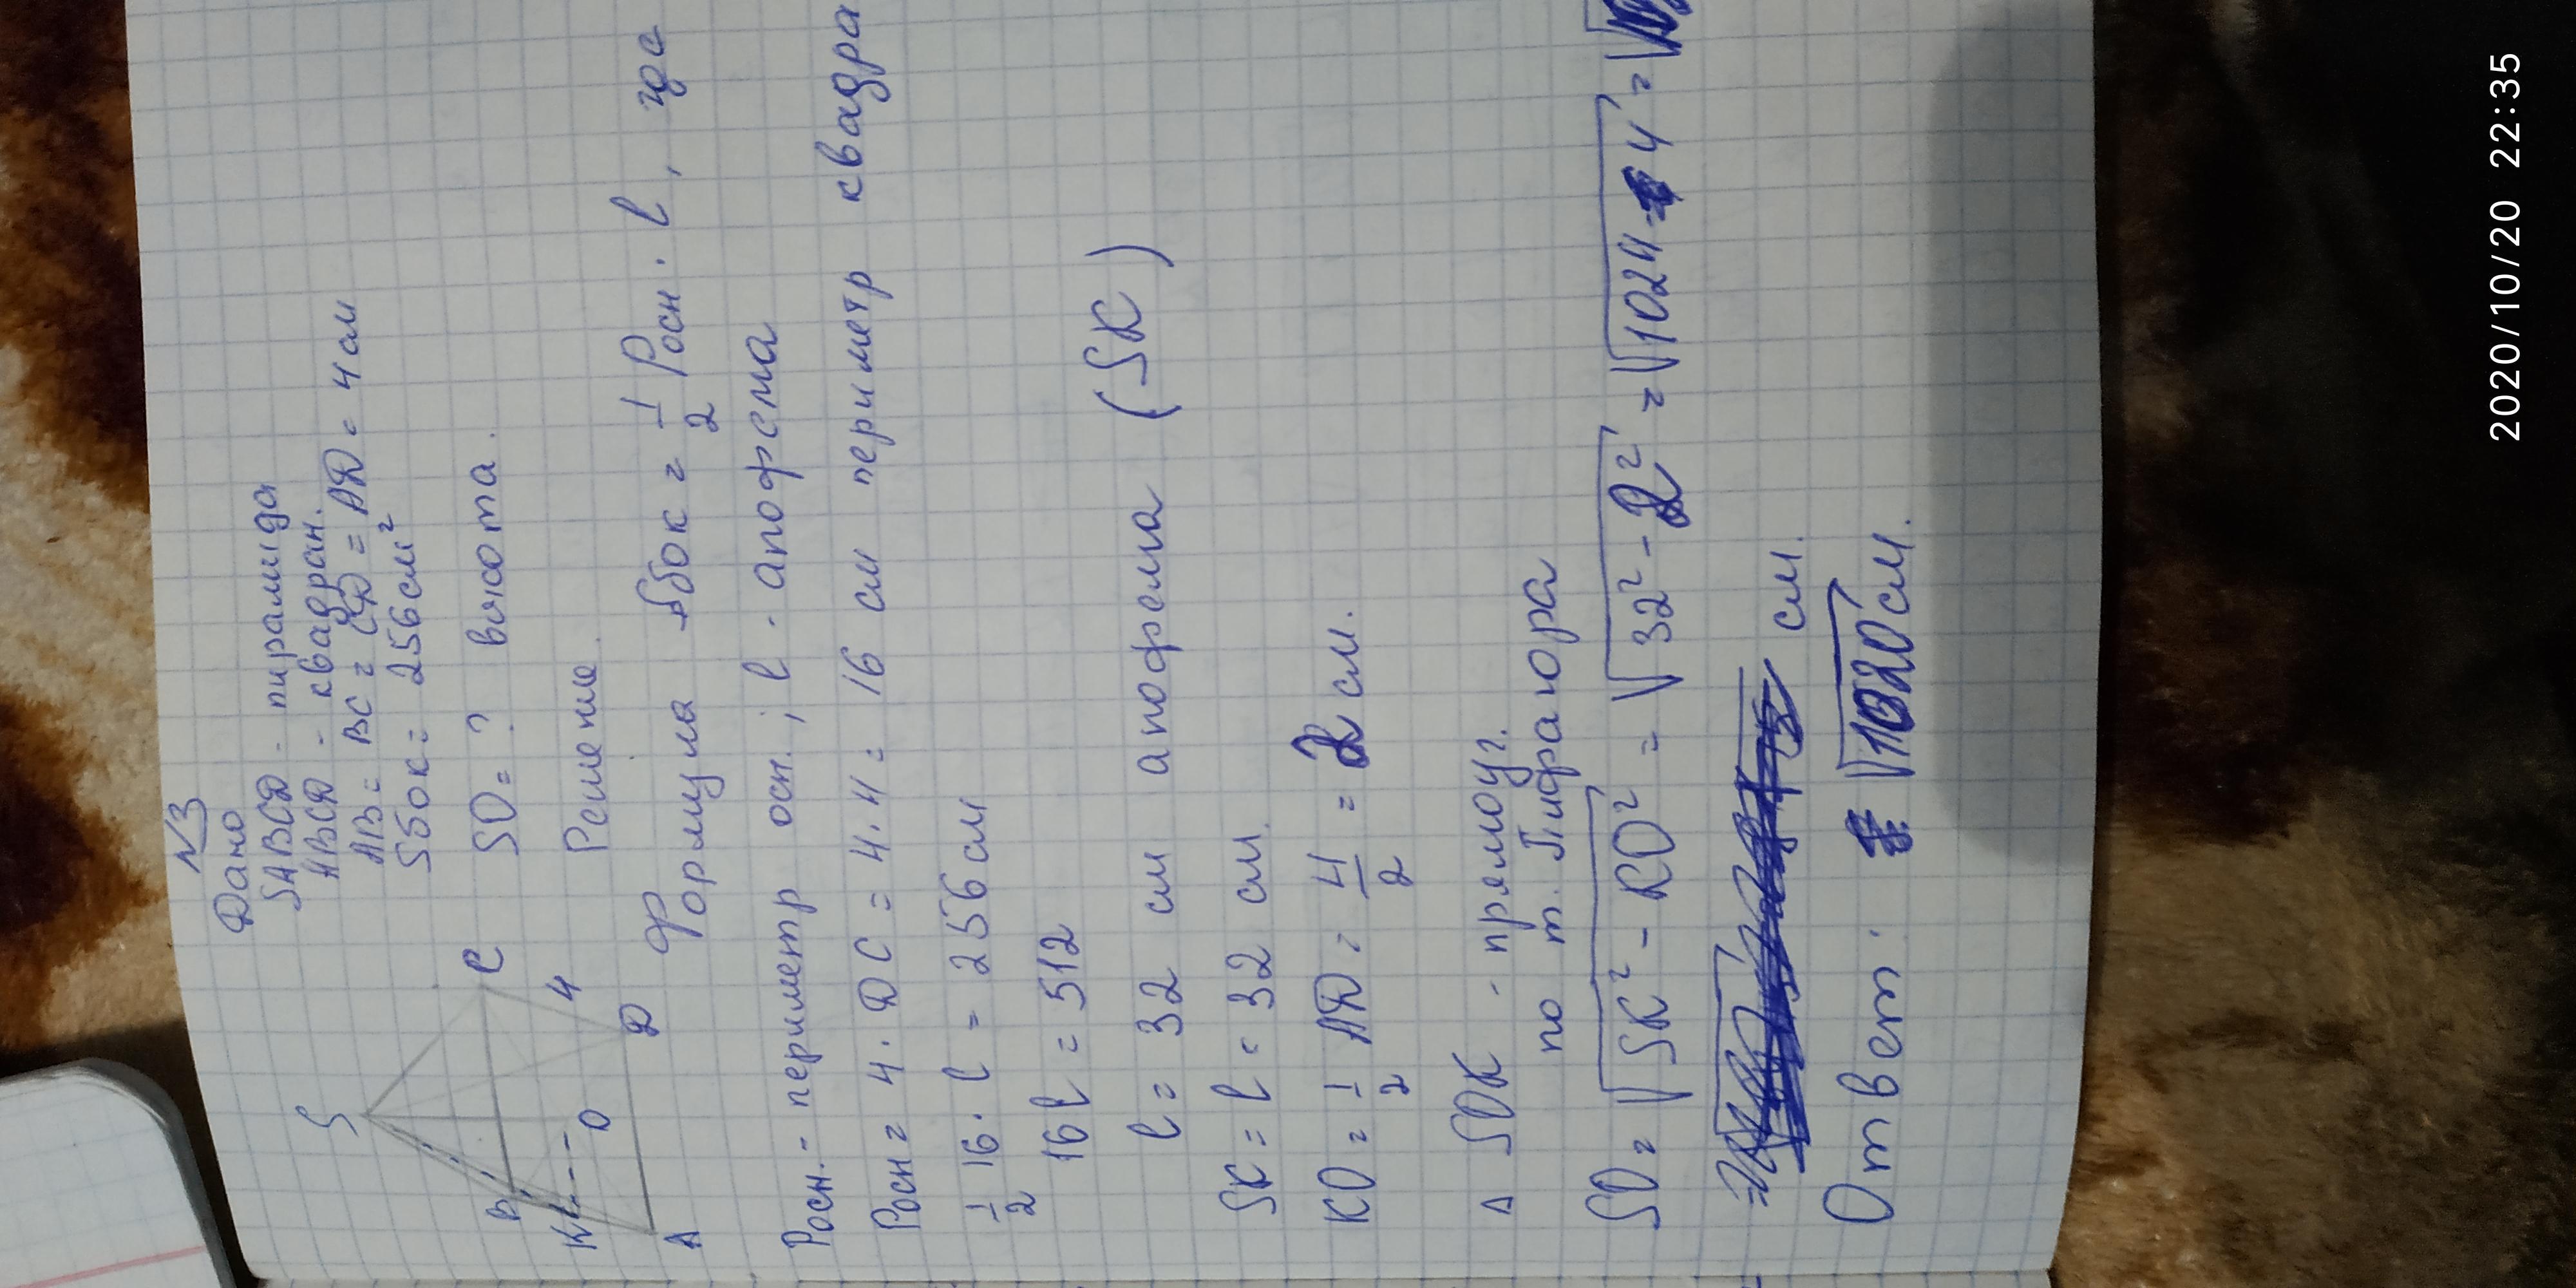 N3
Дано
SABCD - пирамида
ABCD - квадран.
AB = BC = CD = AD = 4 см
Sбок = 256 см²
SO = ? высота.
Решение
S
B
C
K
O
4
A
D
Формула Sбок = 1/2 Pосн. l, где
Pосн. - периметр осн.; l - апофема
Pосн = 4 · DC = 4 · 4 = 16 см периметр квадра
1/2 16 · l = 256 см
16 l = 512
l = 32 см апофема (SK)
SK = l = 32 см
KO = 1/2 AD = 4/2 = 2 см.
Δ SOK - прямоуг.
по т. Пифагора
SO = √SK² - KO² = √32² - 2² = √1024 - 4 = √
= см.
Ответ: √1020 см.
2020/10/20 22:35